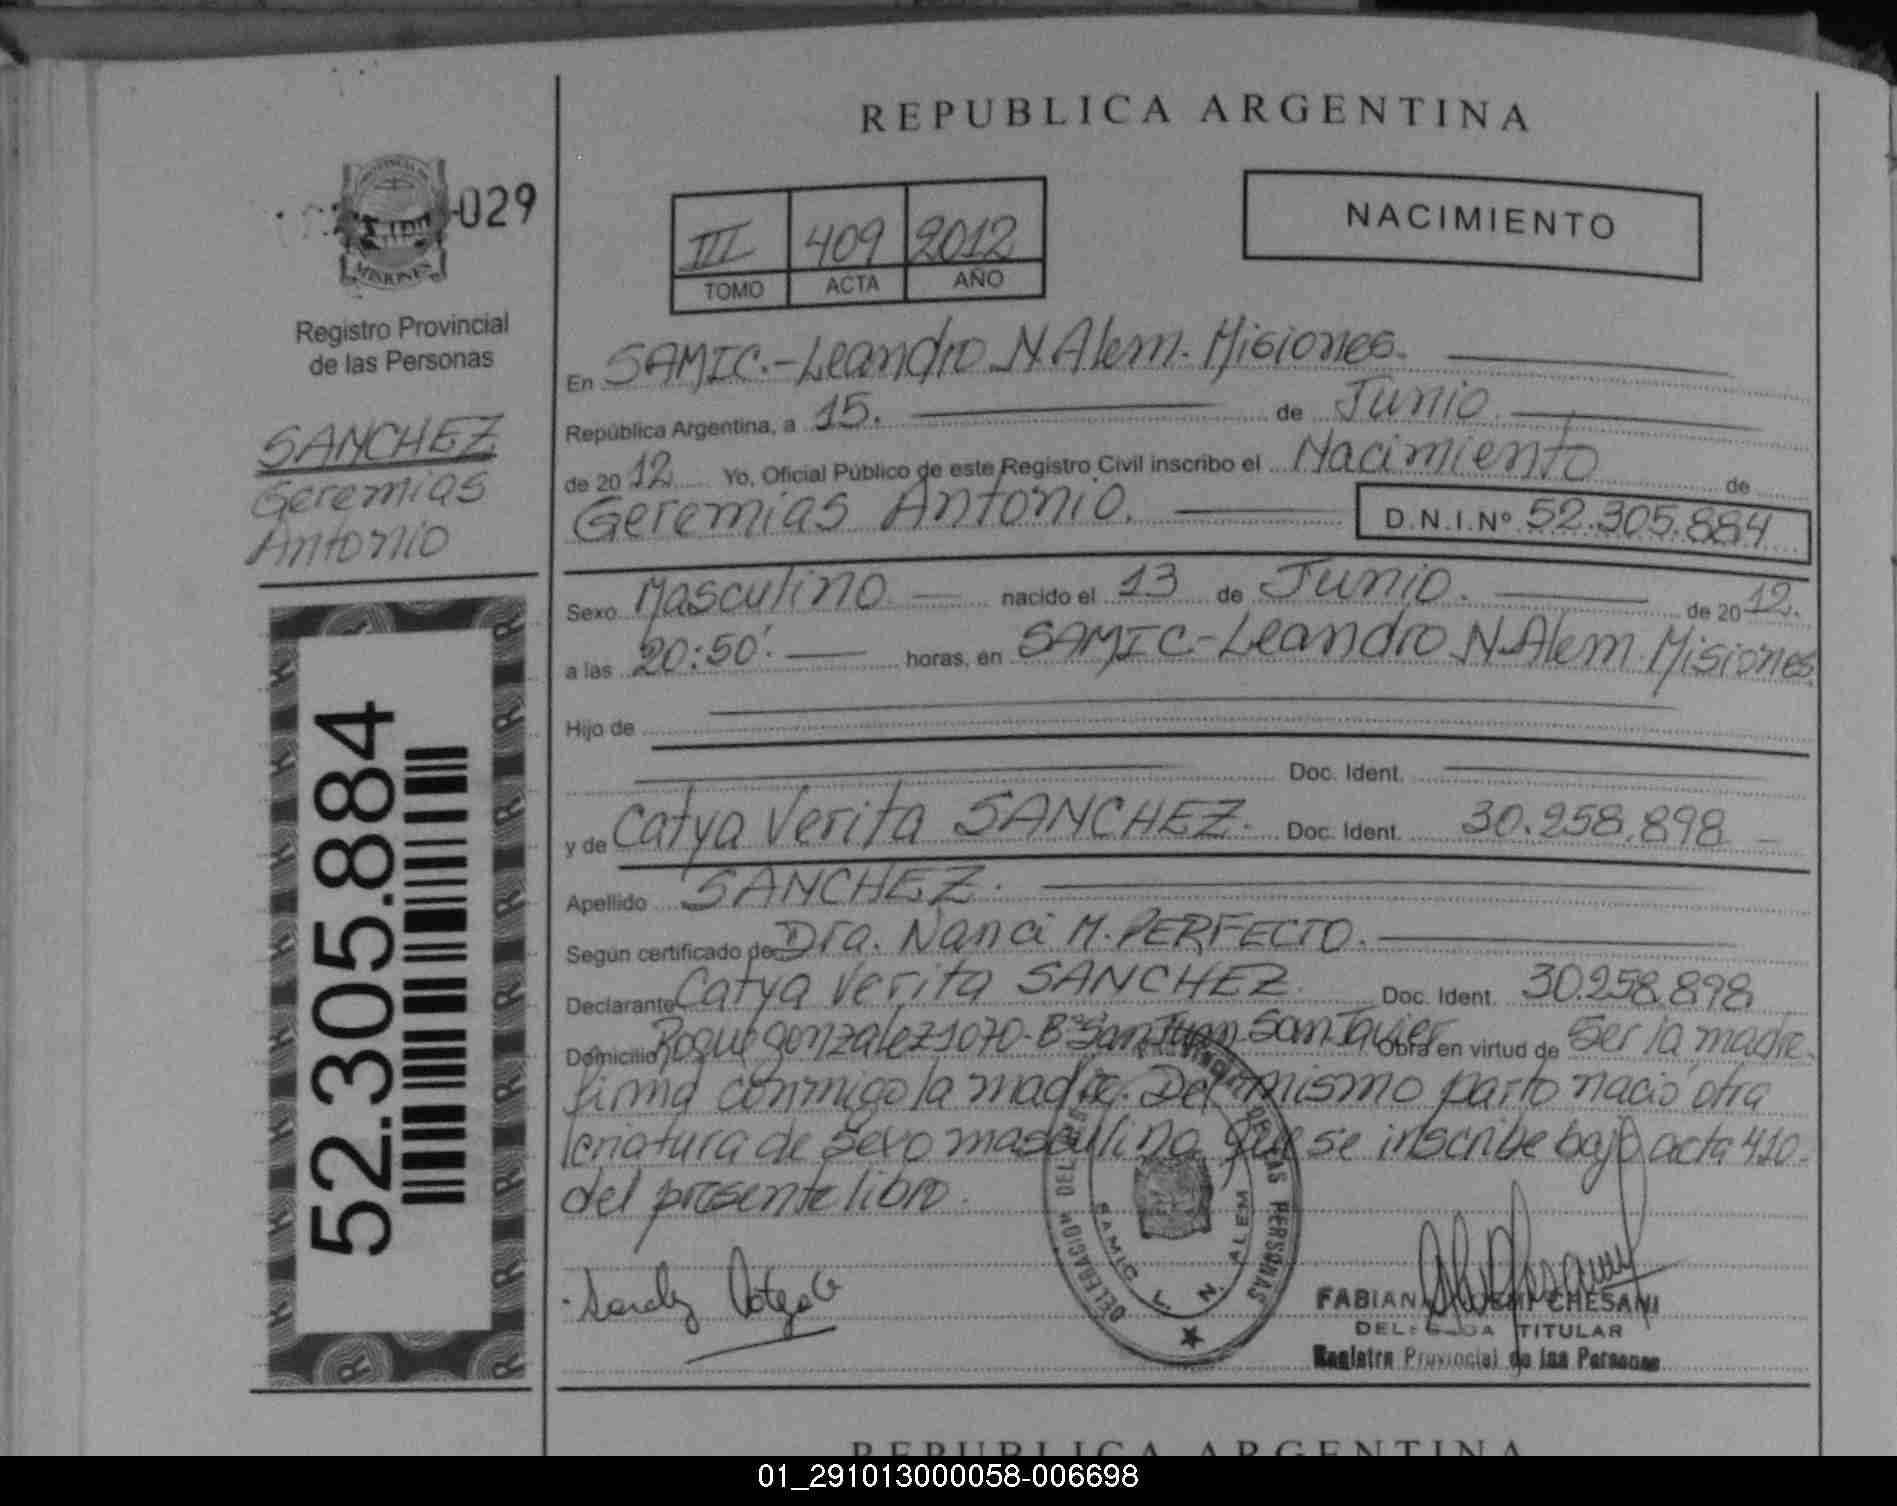 REPUBLICA ARGENTINA
029
MISIONES
Registro Provincial
de las Personas
SANCHEZ
Geremias
Antonio
52.305.884
III 409 2012
TOMO ACTA AÑO
NACIMIENTO
En SAMIC.-Leandro N. Alem. Misiones.
República Argentina, a 15. de Junio.
de 2012 Yo, Oficial Público de este Registro Civil inscribo el Nacimiento de
Geremias Antonio. D.N.I.Nº 52.305.884
Sexo Masculino nacido el 13 de Junio. de 2012.
a las 20:50'. horas, en SAMIC.-Leandro N. Alem. Misiones.
Hijo de
Doc. Ident.
y de Catya Verita SANCHEZ. Doc. Ident. 30.258.898
Apellido SANCHEZ.
Según certificado de Dra. Nanci M. PERFECTO.
Declarante Catya Verita SANCHEZ. Doc. Ident. 30.258.898
Domicilio Roque gonzalez 1070-Bº San Juan. San Javier Obra en virtud de Ser la madre.
firma conmigo la madre. Del mismo parto nació otra
criatura de sexo masculino que se inscribe bajo acta 410.
del presente libro.
DELEGACION DEL REG. PROVINCIAL DE LAS PERSONAS
SAMIC L. N. ALEM
FABIANA NOEMI CHESANI
DELEGADA TITULAR
Registro Provincial de las Personas
REPUBLICA ARGENTINA
01_291013000058-006698